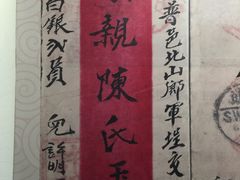 普邑北山鄉軍埕交
親陳氏玉
銀弍員 兒許明
SW